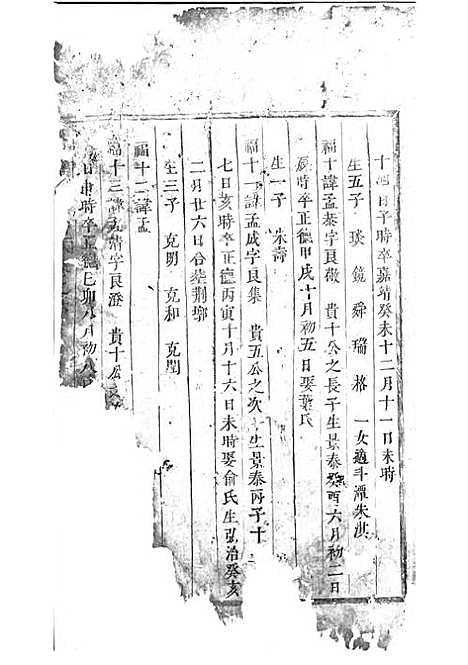 十四日子時卒嘉靖癸未十二月十一日未時
生五子　琰　鏡　舜　瑞　格　一女適斗潭朱洪
福十諱孟泰字良敬　貴十公之長子生景泰癸酉六月初二日
辰時卒正德甲戌十月初五日娶葉氏
生一子　朱壽
福十一諱孟成字良集　貴五公之次　生景泰丙子十
七日亥時卒正德丙寅十月十六日未時娶俞氏生弘治癸亥
二月廿六日合塟荆㘯
生三子　克明　克和　克閏
福十二諱孟
福十三諱孟靖字良澄　貴十公
日申時卒正德己卯八月初八日